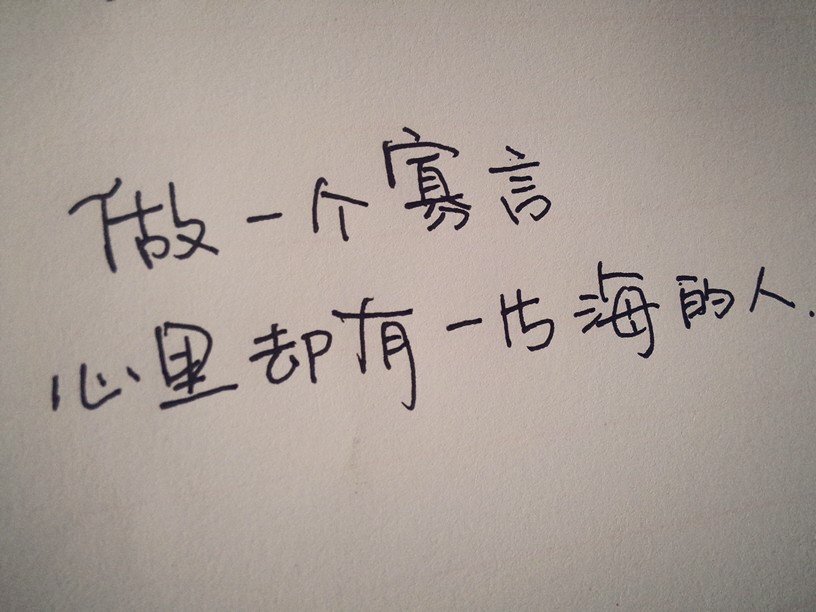 做一个寡言
心里却有一片海的人.